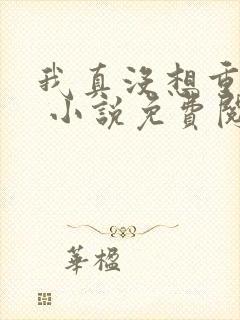 我真没想重
小說免費閱
華楹